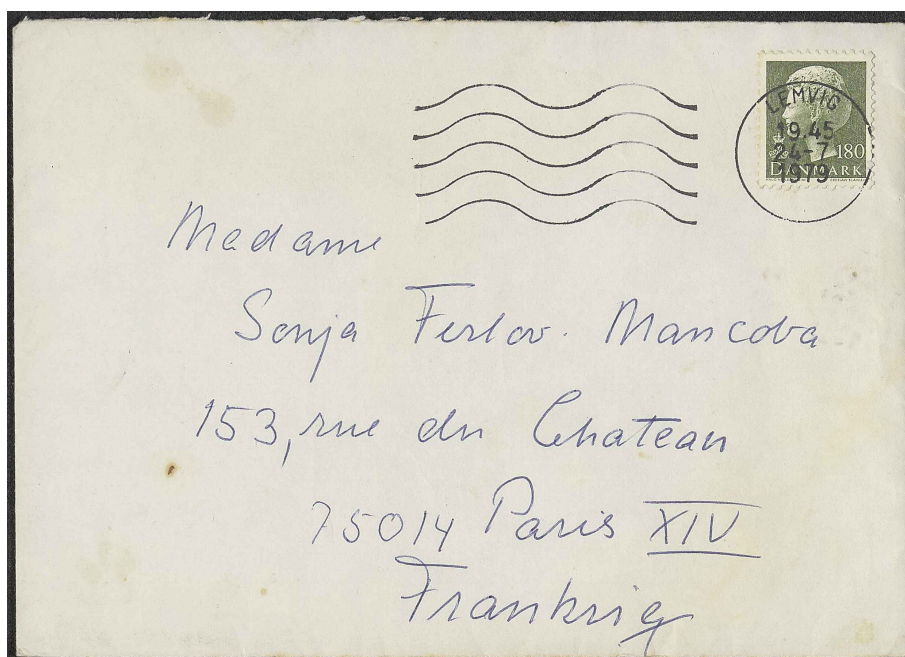 LEMVIG
19.45
4-7
1979
180
DANMARK
Madame
Sonja Ferlov. Mancoba
153, rue du Chateau
75014 Paris XIV
Frankrig